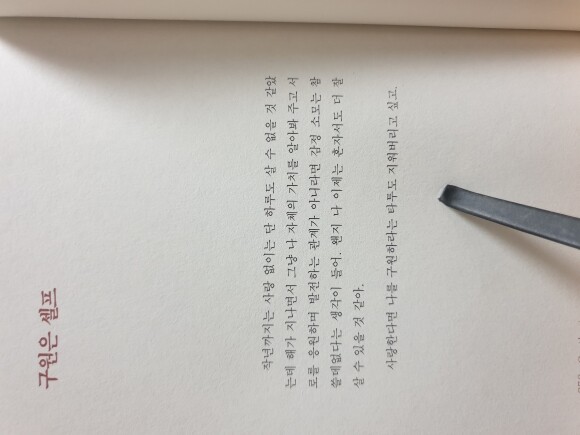 구원은 셀프
작년까지는 사랑 없이는 단 하루도 살 수 없을 것 같았
는데 해가 지나면서 그냥 나 자체의 가치를 알아봐 주고 서
로를 응원하며 발전하는 관계가 아니라면 감정 소모는 참
쓸데없다는 생각이 들어. 왠지 나 이제는 혼자서도 더 잘
살 수 있을 것 같아.
사랑한다면 나를 구원하라는 타투도 지워버리고 싶고.